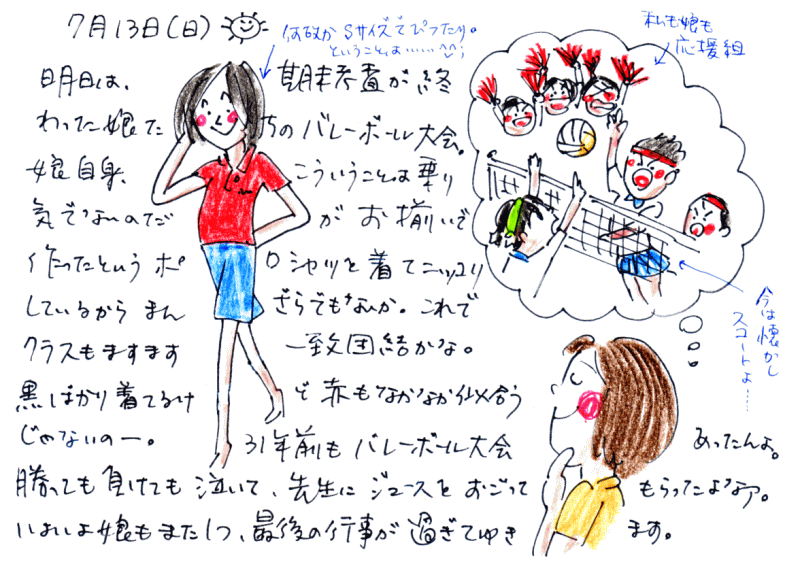 7月13日(日)
何故かSサイズでぴったり。
ということは……^^;
私も娘も
応援組
明日は、期末考査が終
わった娘たちのバレーボール大会。
娘自身、こういうことは乗り
気でないのだがお揃いで
作ったというポロシャツを着てニッコリ
しているからまんざらでもないか。これで
クラスもますます一致団結かな。
黒ばかり着てるけど赤もなかなか似合う
じゃないのー。
31年前もバレーボール大会あったんよ。
勝っても負けても泣いて、先生にジュースをおごってもらったよなァ。
いよいよ娘もまた1つ、最後の行事が過ぎてゆきます。
今は懐かし
スコートよ……